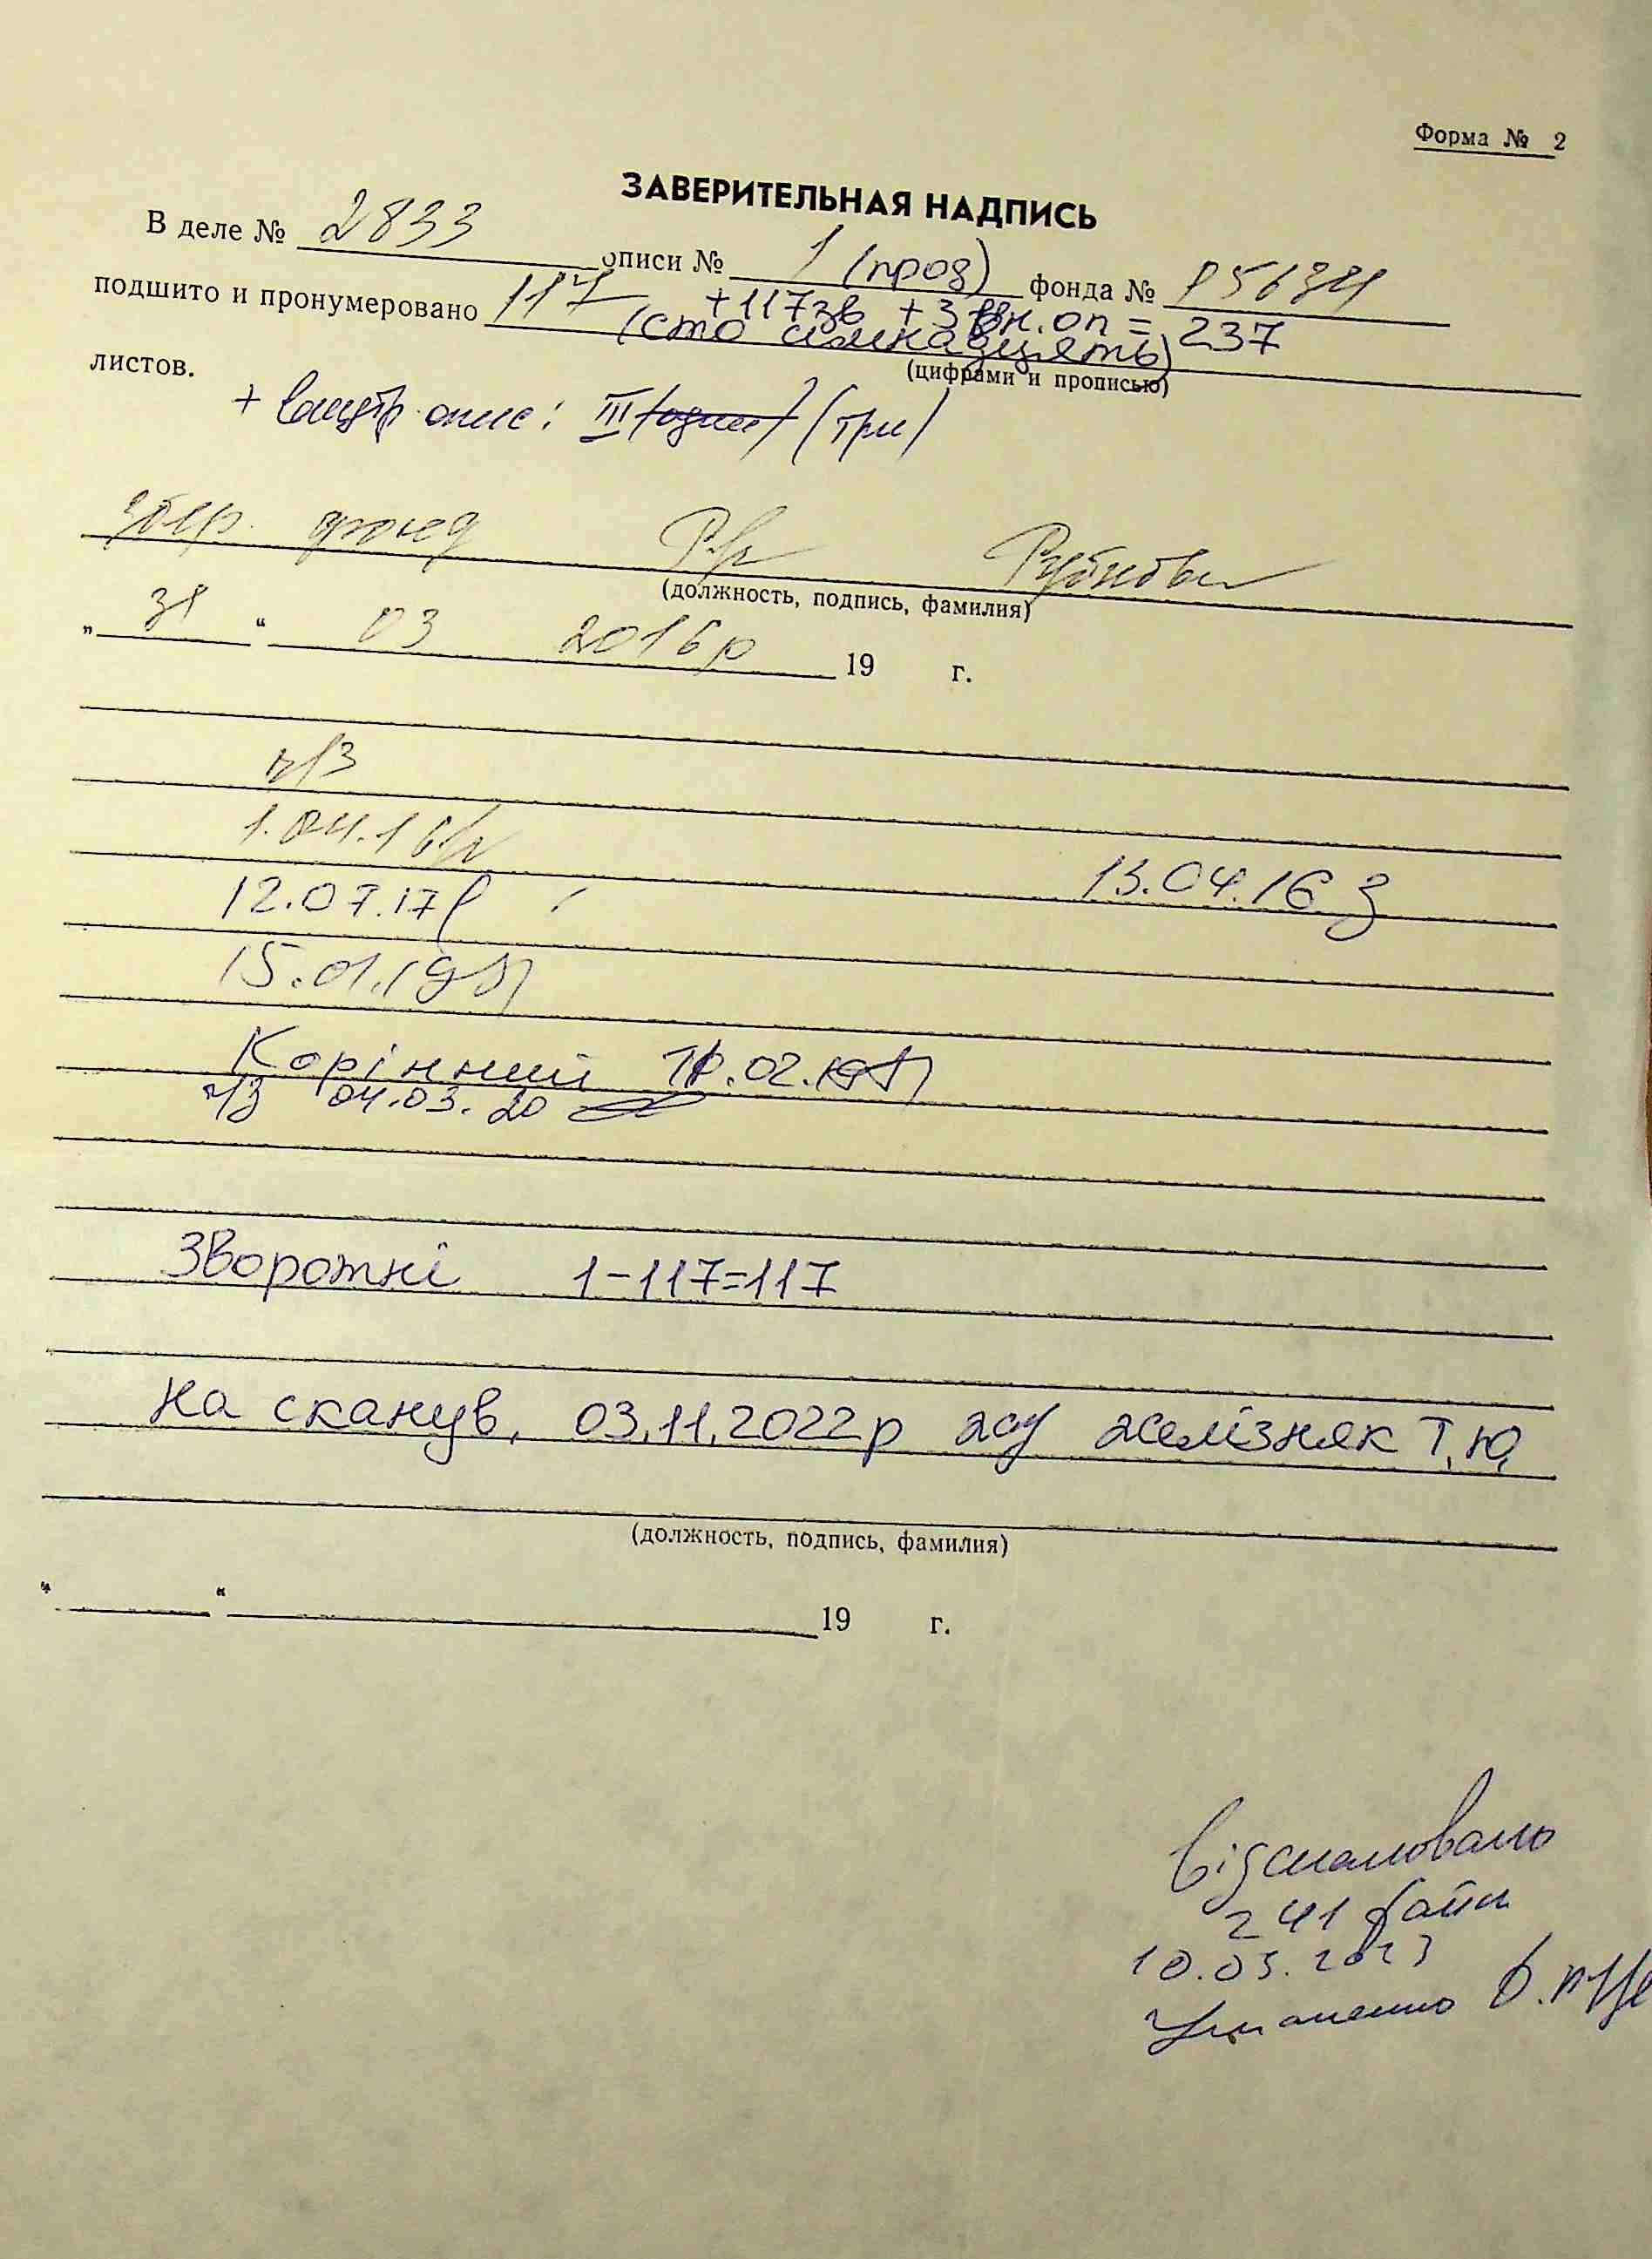 Форма № 2
ЗАВЕРИТЕЛЬНАЯ НАДПИСЬ
В деле № 2833 описи № 1 (прод) фонда № Р5634
подшито и пронумеровано 117 +117зв + 3 вн. оп = 237
(сто сімнадцять)
листов. (цифрами и прописью)
+ внутр опис: III (один) (три)
збер. фонд
(должность, подпись, фамилия)
„ 31 “ 03 2016р 19 г.
ч/з
1.04.16
13.04.16
12.07.17
15.01.19
Корінний 02.19
ч/з 04.03.20
Зворотні 1-117=117
На сканув, 03.11.2022р Желізняк Т.Ю.
(должность, подпись, фамилия)
„ “ 19 г.
Відскановано
241 файл
10.03.2023